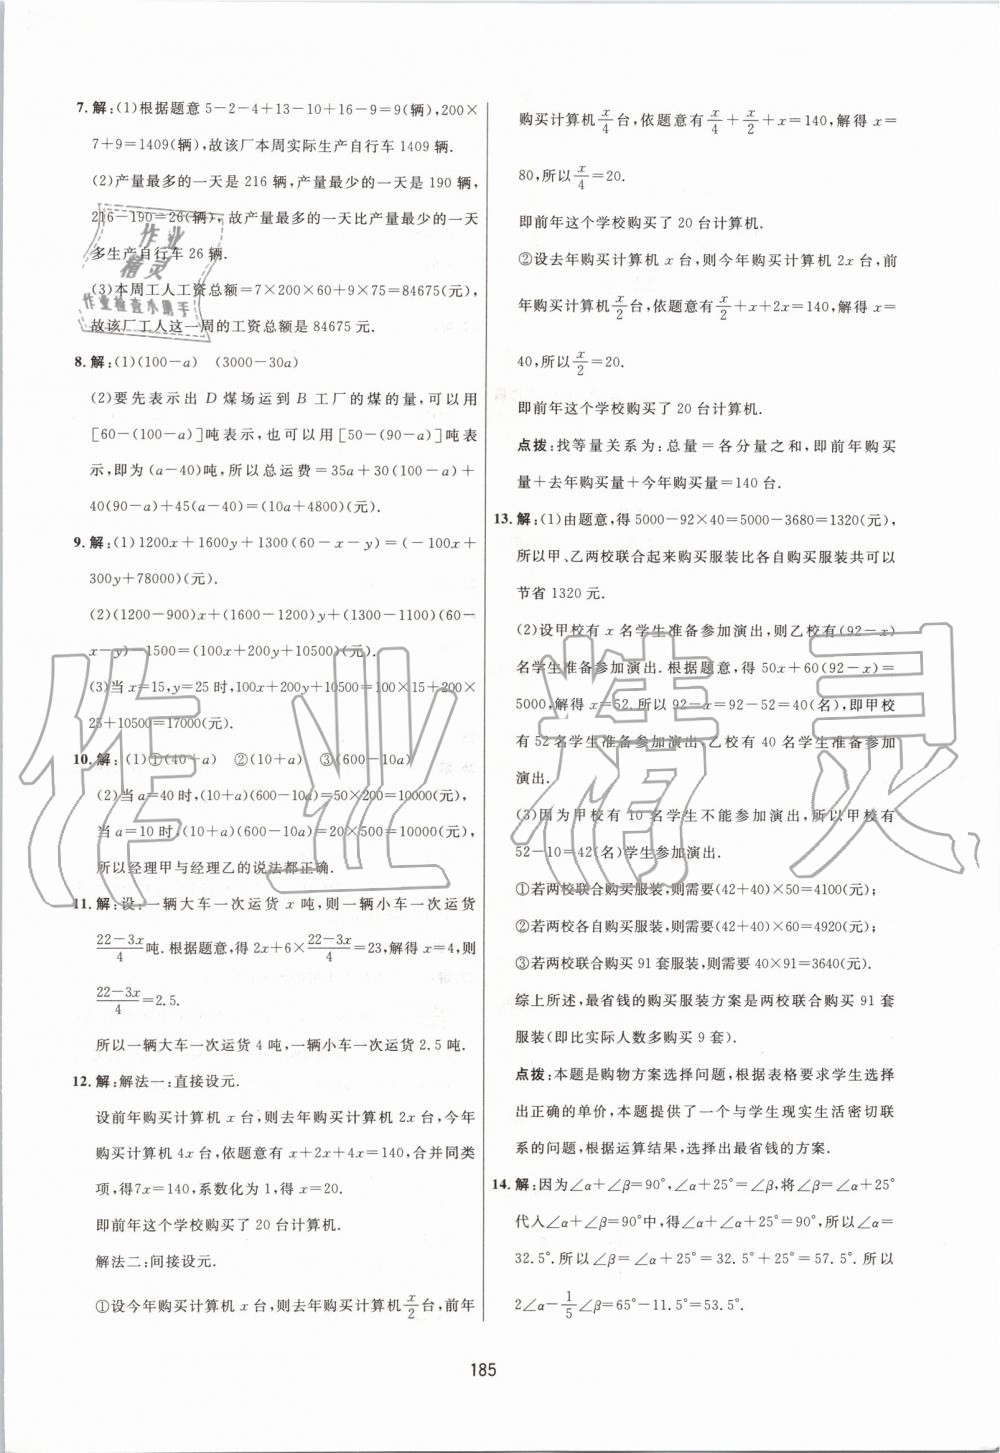 7. 解:(1)根据题意 5-2-4+13-10+16-9=9(辆),200×
7+9=1409(辆),故该厂本周实际生产自行车 1409 辆.
(2)产量最多的一天是 216 辆,产量最少的一天是 190 辆,
216-190=26(辆),故产量最多的一天比产量最少的一天
多生产自行车 26 辆.
(3)本周工人工资总额=7×200×60+9×75=84675(元),
故该厂工人这一周的工资总额是 84675 元.
8. 解:(1)(100-a) (3000-30a)
(2)要先表示出 D 煤场运到 B 工厂的煤的量,可以用
[60-(100-a)]吨表示,也可以用[50-(90-a)]吨表
示,即为(a-40)吨,所以总运费=35a+30(100-a)+
40(90-a)+45(a-40)=(10a+4800)(元).
9. 解:(1)1200x+1600y+1300(60-x-y)=(-100x+
300y+78000)(元).
(2)(1200-900)x+(1600-1200)y+(1300-1100)(60-
x-y)-1500=(100x+200y+10500)(元).
(3)当 x=15,y=25 时,100x+200y+10500=100×15+200×
25+10500=17000(元).
10. 解:(1)①(40+a) ②(10+a) ③(600-10a)
(2)当 a=40时,(10+a)(600-10a)=50×200=10000(元),
当 a=10 时,(10+a)(600-10a)=20×500=10000(元),
所以经理甲与经理乙的说法都正确.
11. 解:设一辆大车一次运货 x 吨,则一辆小车一次运货
(22-3x)/4 吨.根据题意,得 2x+6×(22-3x)/4=23,解得 x=4,则
(22-3x)/4=2.5.
所以一辆大车一次运货 4 吨,一辆小车一次运货 2.5 吨.
12. 解:解法一:直接设元.
设前年购买计算机 x 台,则去年购买计算机 2x 台,今年
购买计算机 4x 台,依题意有 x+2x+4x=140,合并同类
项,得7x=140,系数化为 1,得 x=20.
即前年这个学校购买了 20 台计算机.
解法二:间接设元.
①设今年购买计算机 x 台,则去年购买计算机 x/2 台,前年
购买计算机 x/4 台,依题意有 x/4+x/2+x=140,解得 x=
80,所以 x/4=20.
即前年这个学校购买了 20 台计算机.
②设去年购买计算机 x 台,则今年购买计算机 2x 台,前
年购买计算机 x/2 台,依题意有 x/2+x+2x=140,解得 x=
40,所以 x/2=20.
即前年这个学校购买了 20 台计算机.
点拨:找等量关系为:总量=各分量之和,即前年购买
量+去年购买量+今年购买量=140 台.
13. 解:(1)由题意,得 5000-92×40=5000-3680=1320(元),
所以甲、乙两校联合起来购买服装比各自购买服装共可以
节省 1320 元.
(2)设甲校有 x 名学生准备参加演出,则乙校有(92-x)
名学生准备参加演出.根据题意,得 50x+60(92-x)=
5000,解得 x=52.所以 92-x=92-52=40(名),即甲校
有 52 名学生准备参加演出,乙校有 40 名学生准备参加
演出.
(3)因为甲校有 10 名学生不能参加演出,所以甲校有
52-10=42(名)学生参加演出.
①若两校联合购买服装,则需要(42+40)×50=4100(元);
②若两校各自购买服装,则需要(42+40)×60=4920(元);
③若两校联合购买 91 套服装,则需要 40×91=3640(元).
综上所述,最省钱的购买服装方案是两校联合购买 91 套
服装(即比实际人数多购买 9 套).
点拨:本题是购物方案选择问题,根据表格要求学生选择
出正确的单价,本题提供了一个与学生现实生活密切联
系的问题,根据运算结果,选择出最省钱的方案.
14. 解:因为∠α+∠β=90°,∠α+25°=∠β,将∠α+25°
代入∠α+∠β=90°中,得∠α+∠α+25°=90°,所以∠α=
32.5°.所以∠β=∠α+25°=32.5°+25°=57.5°.所以
2∠α-1/5∠β=65°-11.5°=53.5°.
185
作业
精灵
作业检查小助手
作业精灵